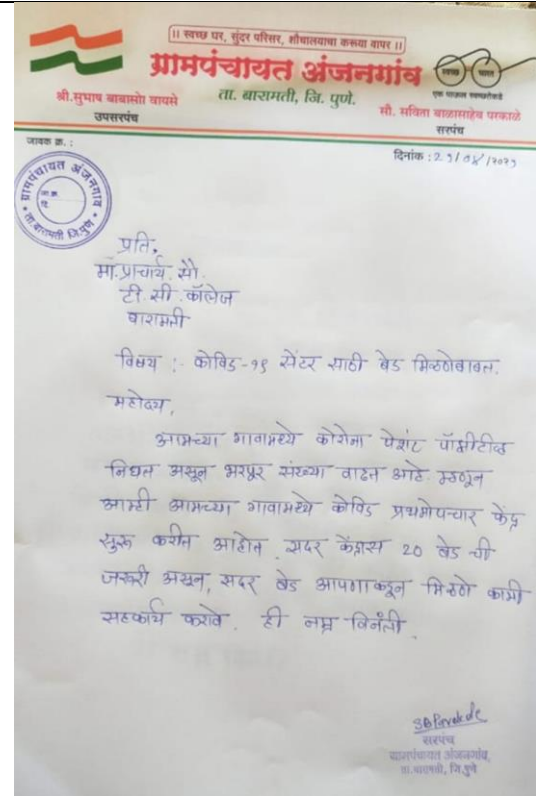 ।। स्वच्छ घर, सुंदर परिसर, शौचालयाचा करूया वापर ।।
ग्रामपंचायत अंजनगांव
स्वच्छ भारत
एक पाऊल स्वच्छतेकडे
ता. बारामती, जि. पुणे.
श्री.सुभाष बाबासो वायसे
उपसरपंच
सौ. सविता बाळासाहेब परकाळे
सरपंच
जावक क्र. :
दिनांक :
ग्रामपंचायत अंजनगांव
जा.क्र.
दि.
ता.बारामती जि.पुणे
प्रति,
मा.प्राचार्य सो.
टी.सी.कॉलेज
बारामती
विषय :- कोविड-१९ सेंटर साठी बेड मिळणेबाबत.
महोदय,
आमच्या गावामध्ये कोरोना पेशंट पॉझीटीव्ह
निघत असून भरपूर संख्या वाढत आहे. म्हणून
आम्ही आमच्या गावामध्ये कोविड प्रथमोपचार केंद्र
सुरू करीत आहोत. सदर केंद्रास 20 बेड ची
जरूरी असून, सदर बेड आपणाकडून मिळणे कामी
सहकार्य करावे. ही नम्र विनंती.
सरपंच
ग्रामपंचायत अंजनगांव,
ता.बारामती, जि.पुणे